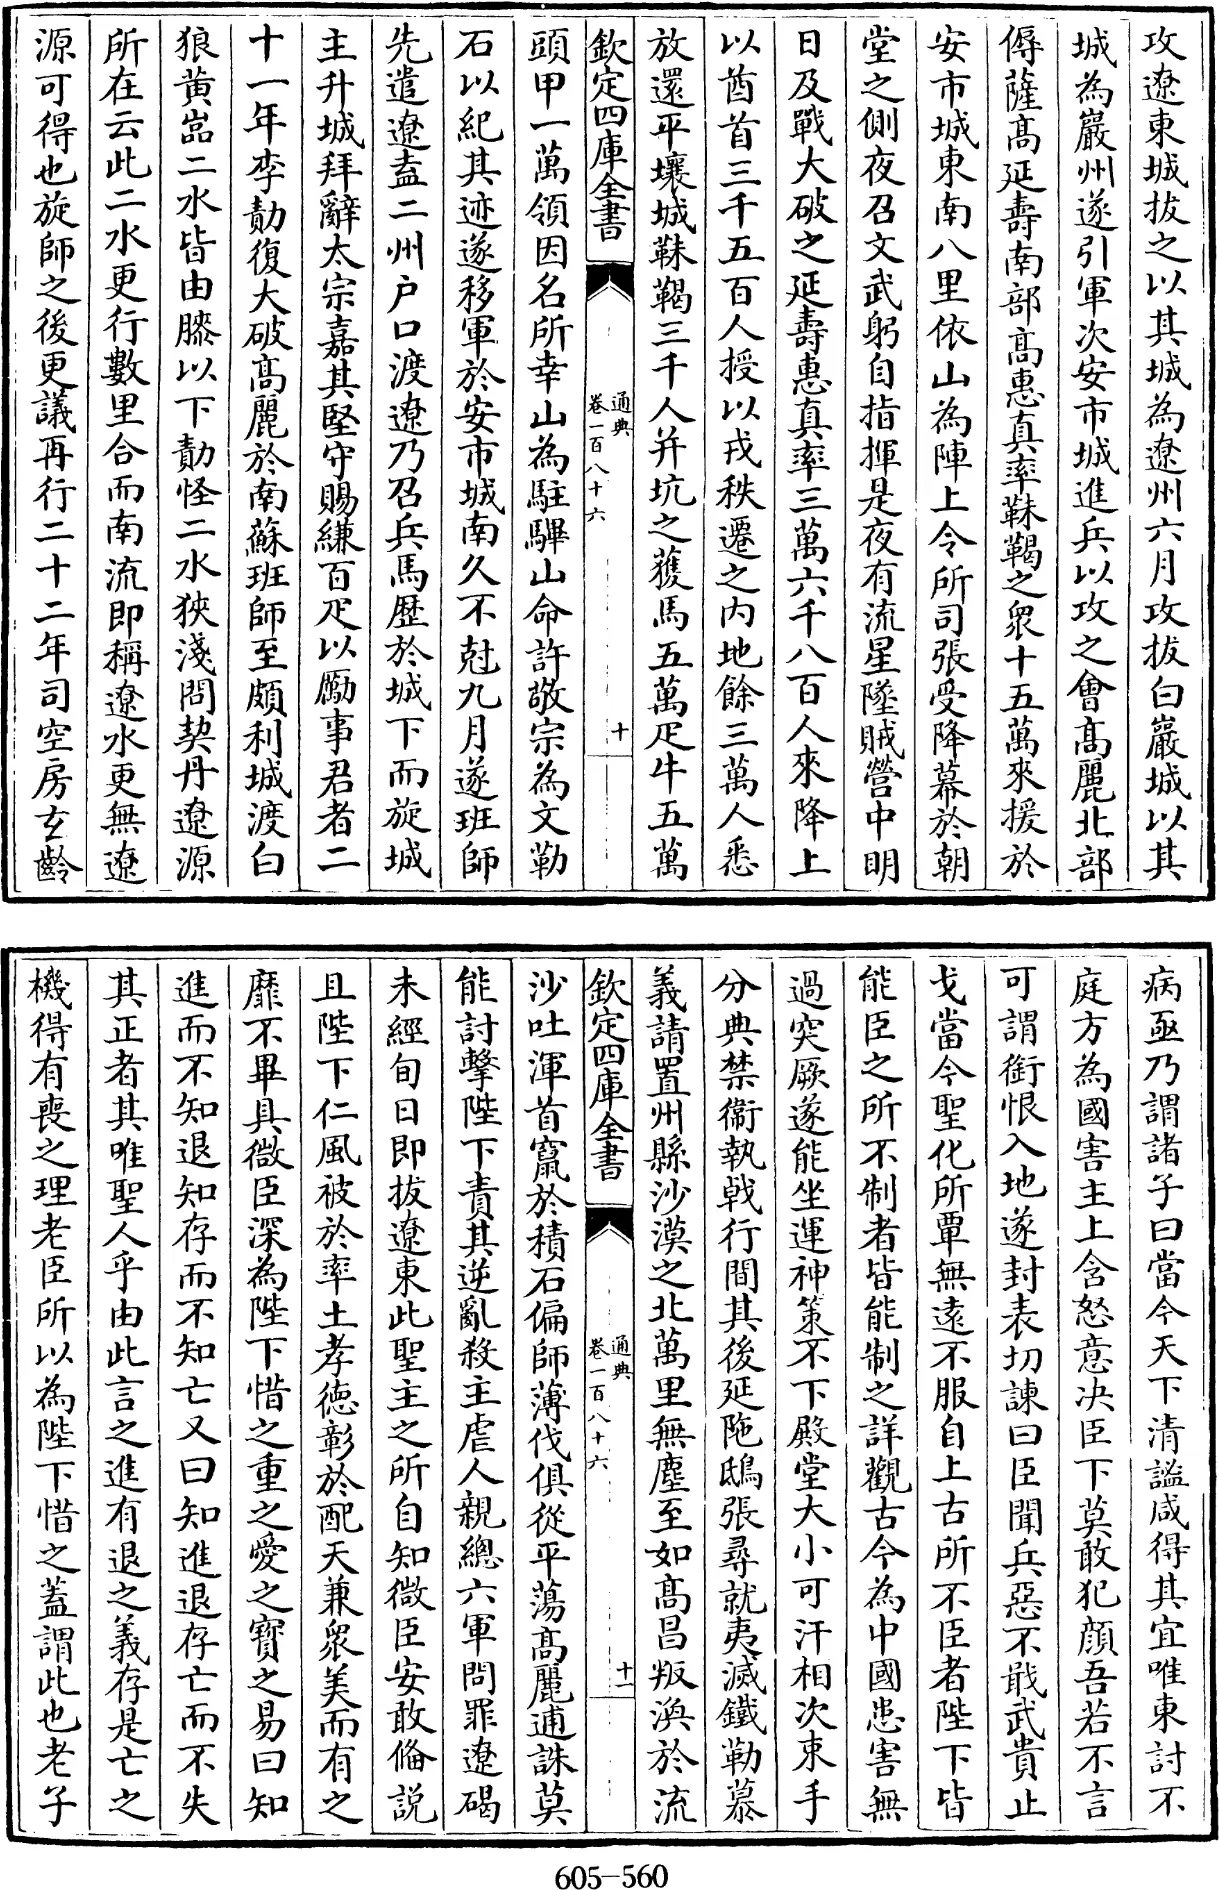 攻遼東城拔之以其城為遼州六月攻拔白巖城以其
城為巖州遂引軍次安市城進兵以攻之會髙麗北部
傉薩髙延壽南部髙惠真率靺鞨之衆十五萬來援於
安市城東南八里依山為陣上令所司張受降幕於朝
堂之側夜召文武躬自指揮是夜有流星墜賊營中明
日及戰大破之延壽惠真率三萬六千八百人來降上
以酋首三千五百人授以戎秩遷之内地餘三萬人悉
放還平壤城靺鞨三千人并坑之獲馬五萬疋牛五萬
欽定四庫全書
通典
卷一百八十六
十
頭甲一萬領因名所幸山為駐驆山命許敬宗為文勒
石以紀其迹遂移軍於安市城南久不尅九月遂班師
先遣遼葢二州户口渡遼乃召兵馬歷於城下而旋城
主升城拜辭太宗嘉其堅守賜縑百疋以勵事君者二
十一年李勣復大破髙麗於南蘇班師至頗利城渡白
狼黄嵓二水皆由膝以下勣怪二水狹淺問契丹遼源
所在云此二水更行數里合而南流即稱遼水更無遼
源可得也旋師之後更議再行二十二年司空房玄齡
病亟乃謂諸子曰當今天下清謐咸得其宜唯東討不
庭方為國害主上含怒意决臣下莫敢犯顔吾若不言
可謂銜恨入地遂封表切諫曰臣聞兵惡不戢武貴止
戈當今聖化所覃無遠不服自上古所不臣者陛下皆
能臣之所不制者皆能制之詳觀古今為中國患害無
過突厥遂能坐運神策不下殿堂大小可汗相次束手
分典禁衞執戟行間其後延陁鴟張尋就夷滅鐵勒慕
義請置州縣沙漠之北萬里無塵至如髙昌叛渙於流
欽定四庫全書
通典
卷一百八十六
十一
沙吐渾首竄於積石偏師薄伐俱從平蕩髙麗逋誅莫
能討擊陛下責其逆亂殺主虐人親總六軍問罪遼碣
未經旬日即拔遼東此聖主之所自知微臣安敢俻説
且陛下仁風被於率土孝徳彰於配天兼衆美而有之
靡不畢具微臣深為陛下惜之重之愛之寳之易曰知
進而不知退知存而不知亡又曰知進退存亡而不失
其正者其唯聖人乎由此言之進有退之義存是亡之
機得有喪之理老臣所以為陛下惜之蓋謂此也老子
605-560